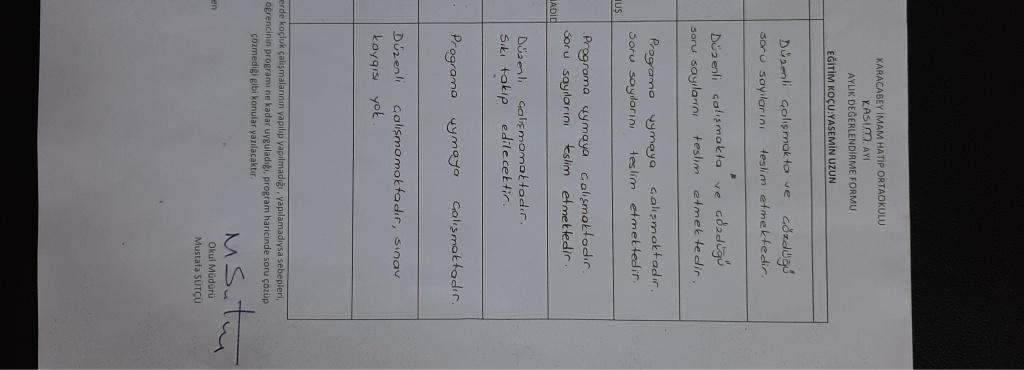 KARACABEY İMAM HATİP ORTAOKULU
KASIM AYI
AYLIK DEĞERLENDİRME FORMU
EĞİTİM KOÇU:YASEMİN UZUN
Düzenli çalışmakta ve çözdüğü
soru sayılarını teslim etmektedir.
Düzenli çalışmakta ve çözdüğü
soru sayılarını teslim etmektedir.
UŞ
Programa uymaya çalışmaktadır.
soru sayılarını teslim etmektedir.
Programa uymaya çalışmaktadır.
soru sayılarını teslim etmektedir.
Düzenli çalışmamaktadır.
Sıkı takip edilecektir.
Programa uymaya çalışmaktadır.
Düzenli çalışmamaktadır, sınav
kaygısı yok.
erde koçluk çalışmalarının yapılıp yapılmadığı, yapılamadıysa sebepleri,
öğrencinin programı ne kadar uyguladığı, program haricinde soru çözüp
çözmediği gibi konular yazılacaktır.
en
Okul Müdürü
Mustafa SÜTÇÜ